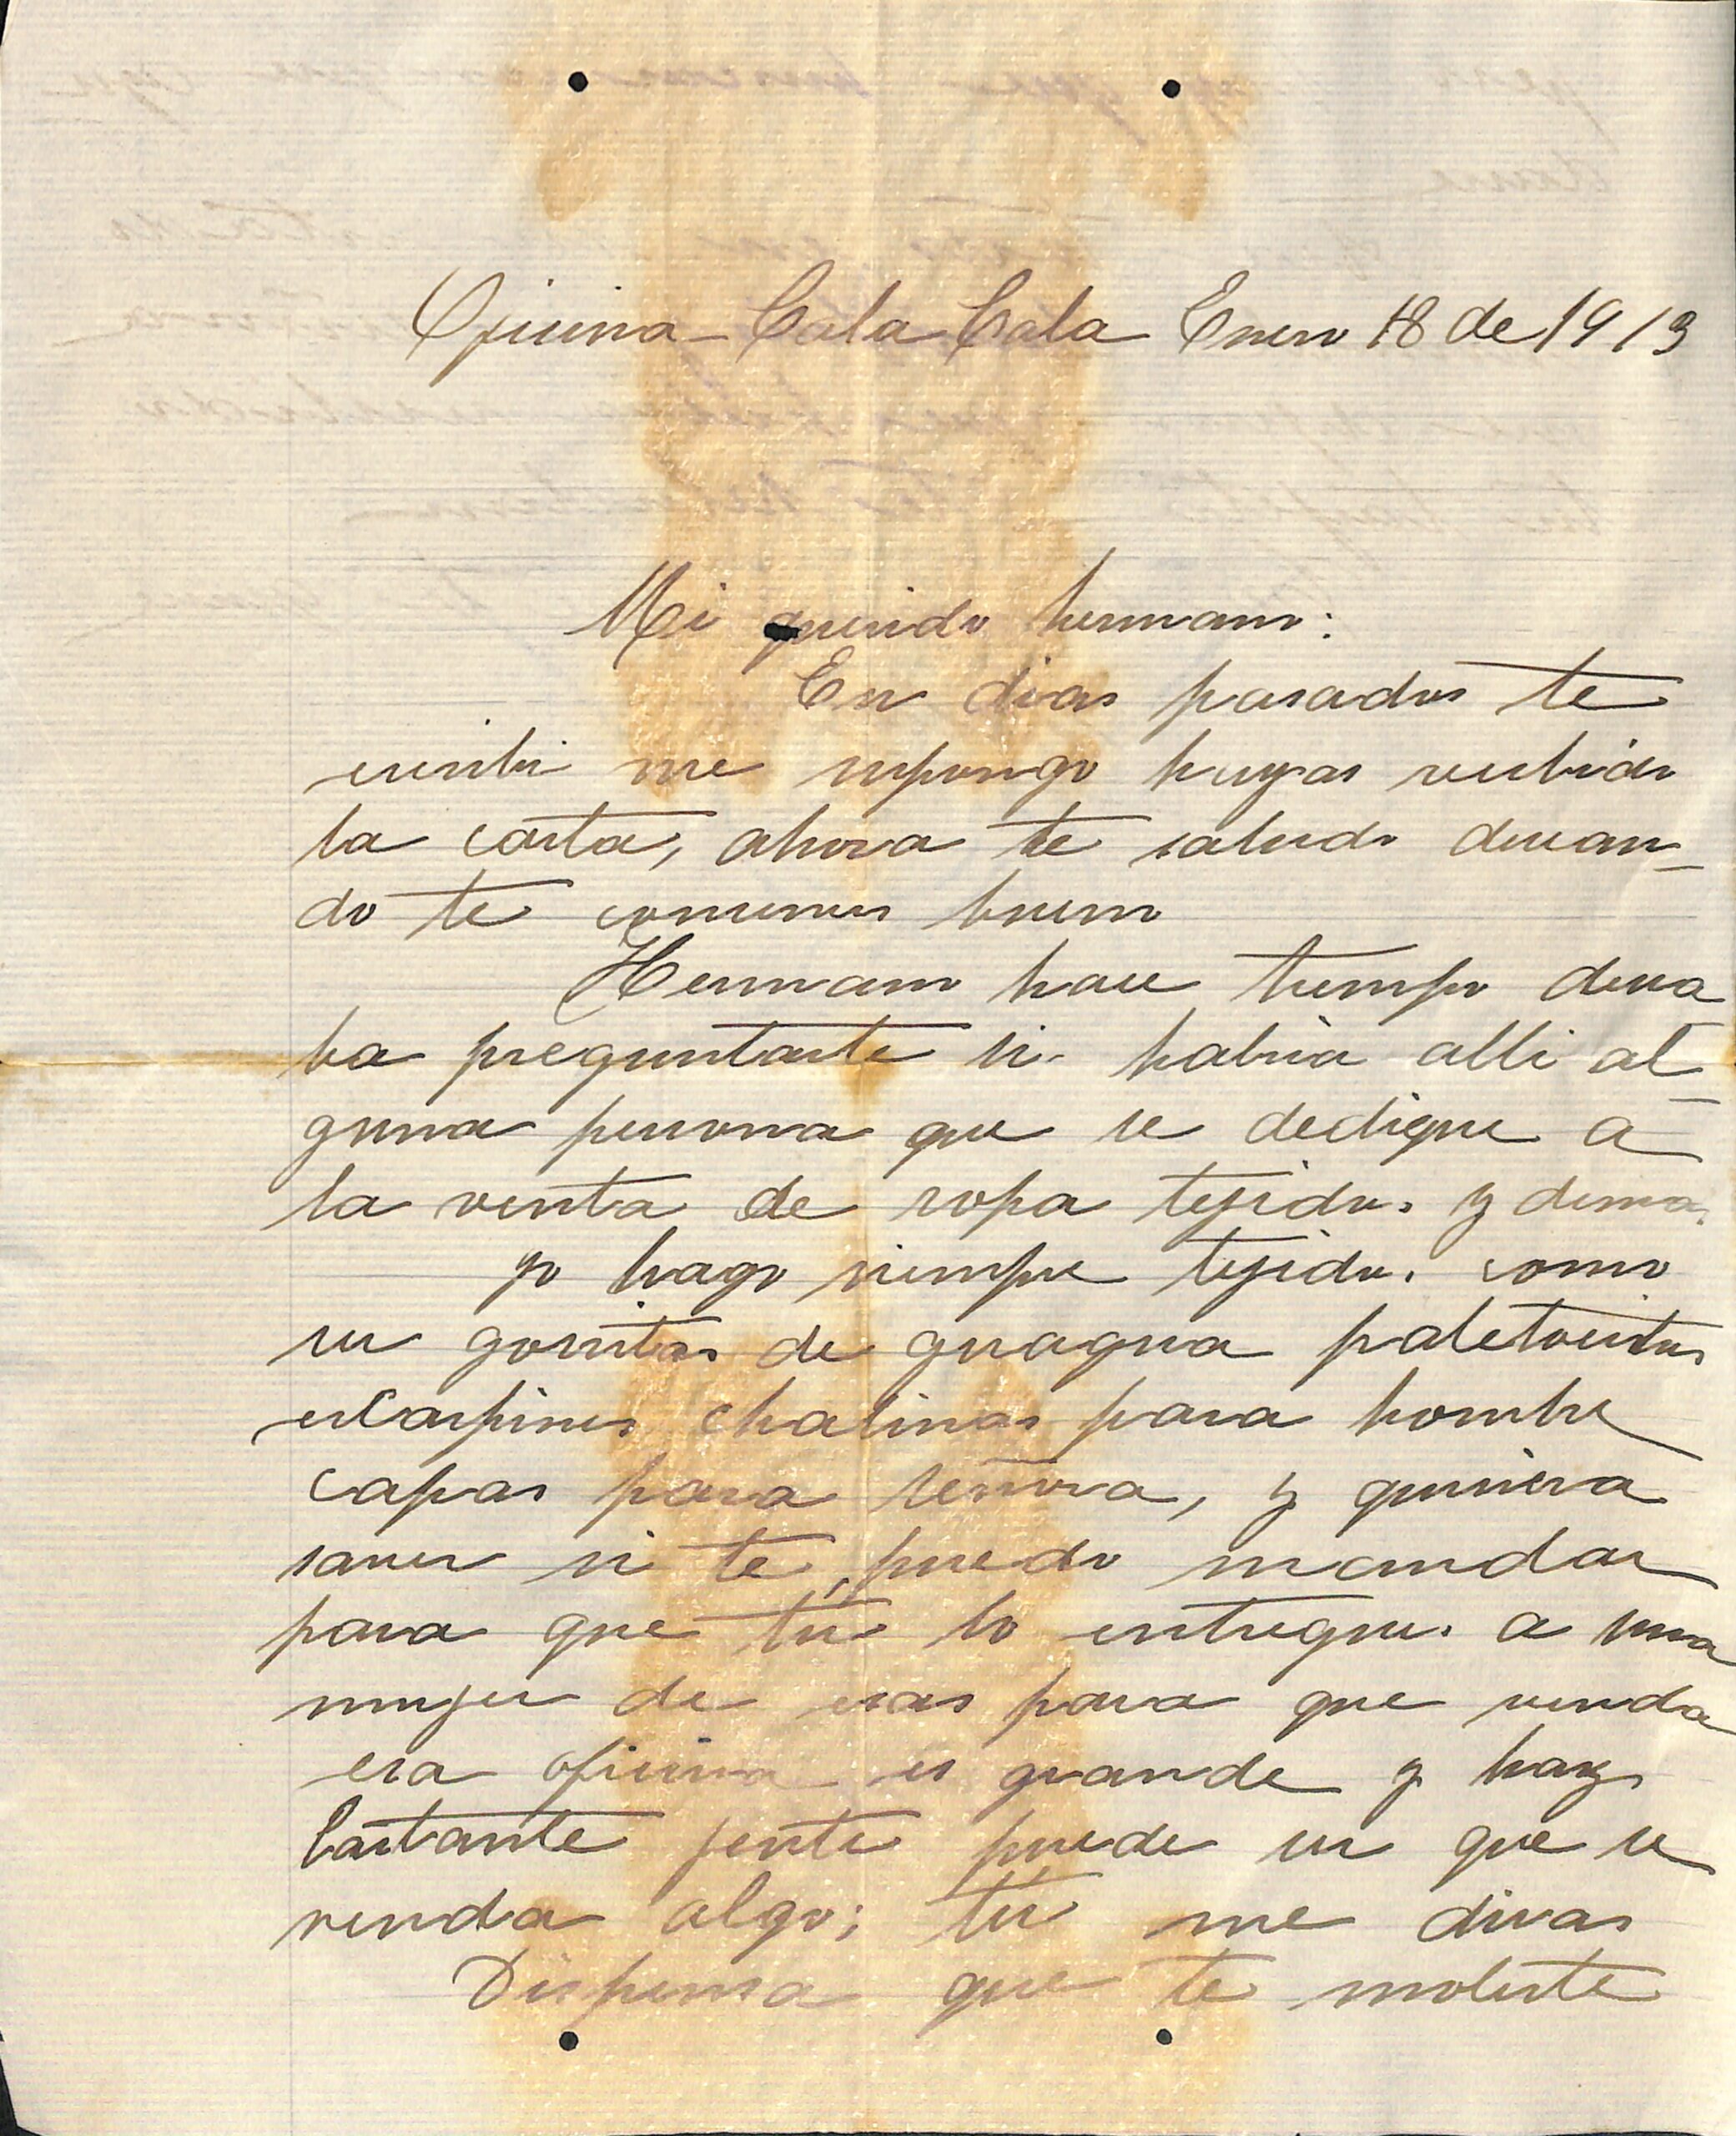 Oficina - Cala Cala Enero 18 de 1913
Mi querido hermano:
En dias pasados te
escribi me supongo hayas recibido
la carta, ahora te saludo desean-
do te conserves bueno
Hermano hace tiempo desea
ba preguntarte si habria alli al-
guna persona que se dedique a
la venta de ropa tejidos y demas
yo hago siempre tejidos como
ser gorritas de guagua paletoncitos
escarpines chalinas para hombre
capas para señora, y quisiera
saver si te puedo mandar
para que tú lo entregues a una
mujer de esas para que venda
esa oficina es grande y hay
bastante jente puede ser que se
venda algo; tú me diras
Dispensa que te moleste